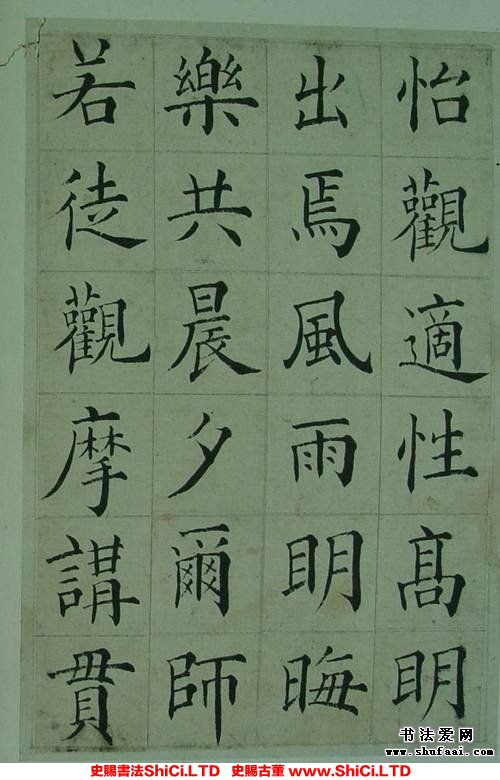 怡觀適性髙明
出焉風雨明晦
樂共晨夕爾師
若徒觀摩講貫
书法爱网
www.shufaai.com
史賜書法ShiCi.LTD 史賜古董 www.ShiCi.LTD